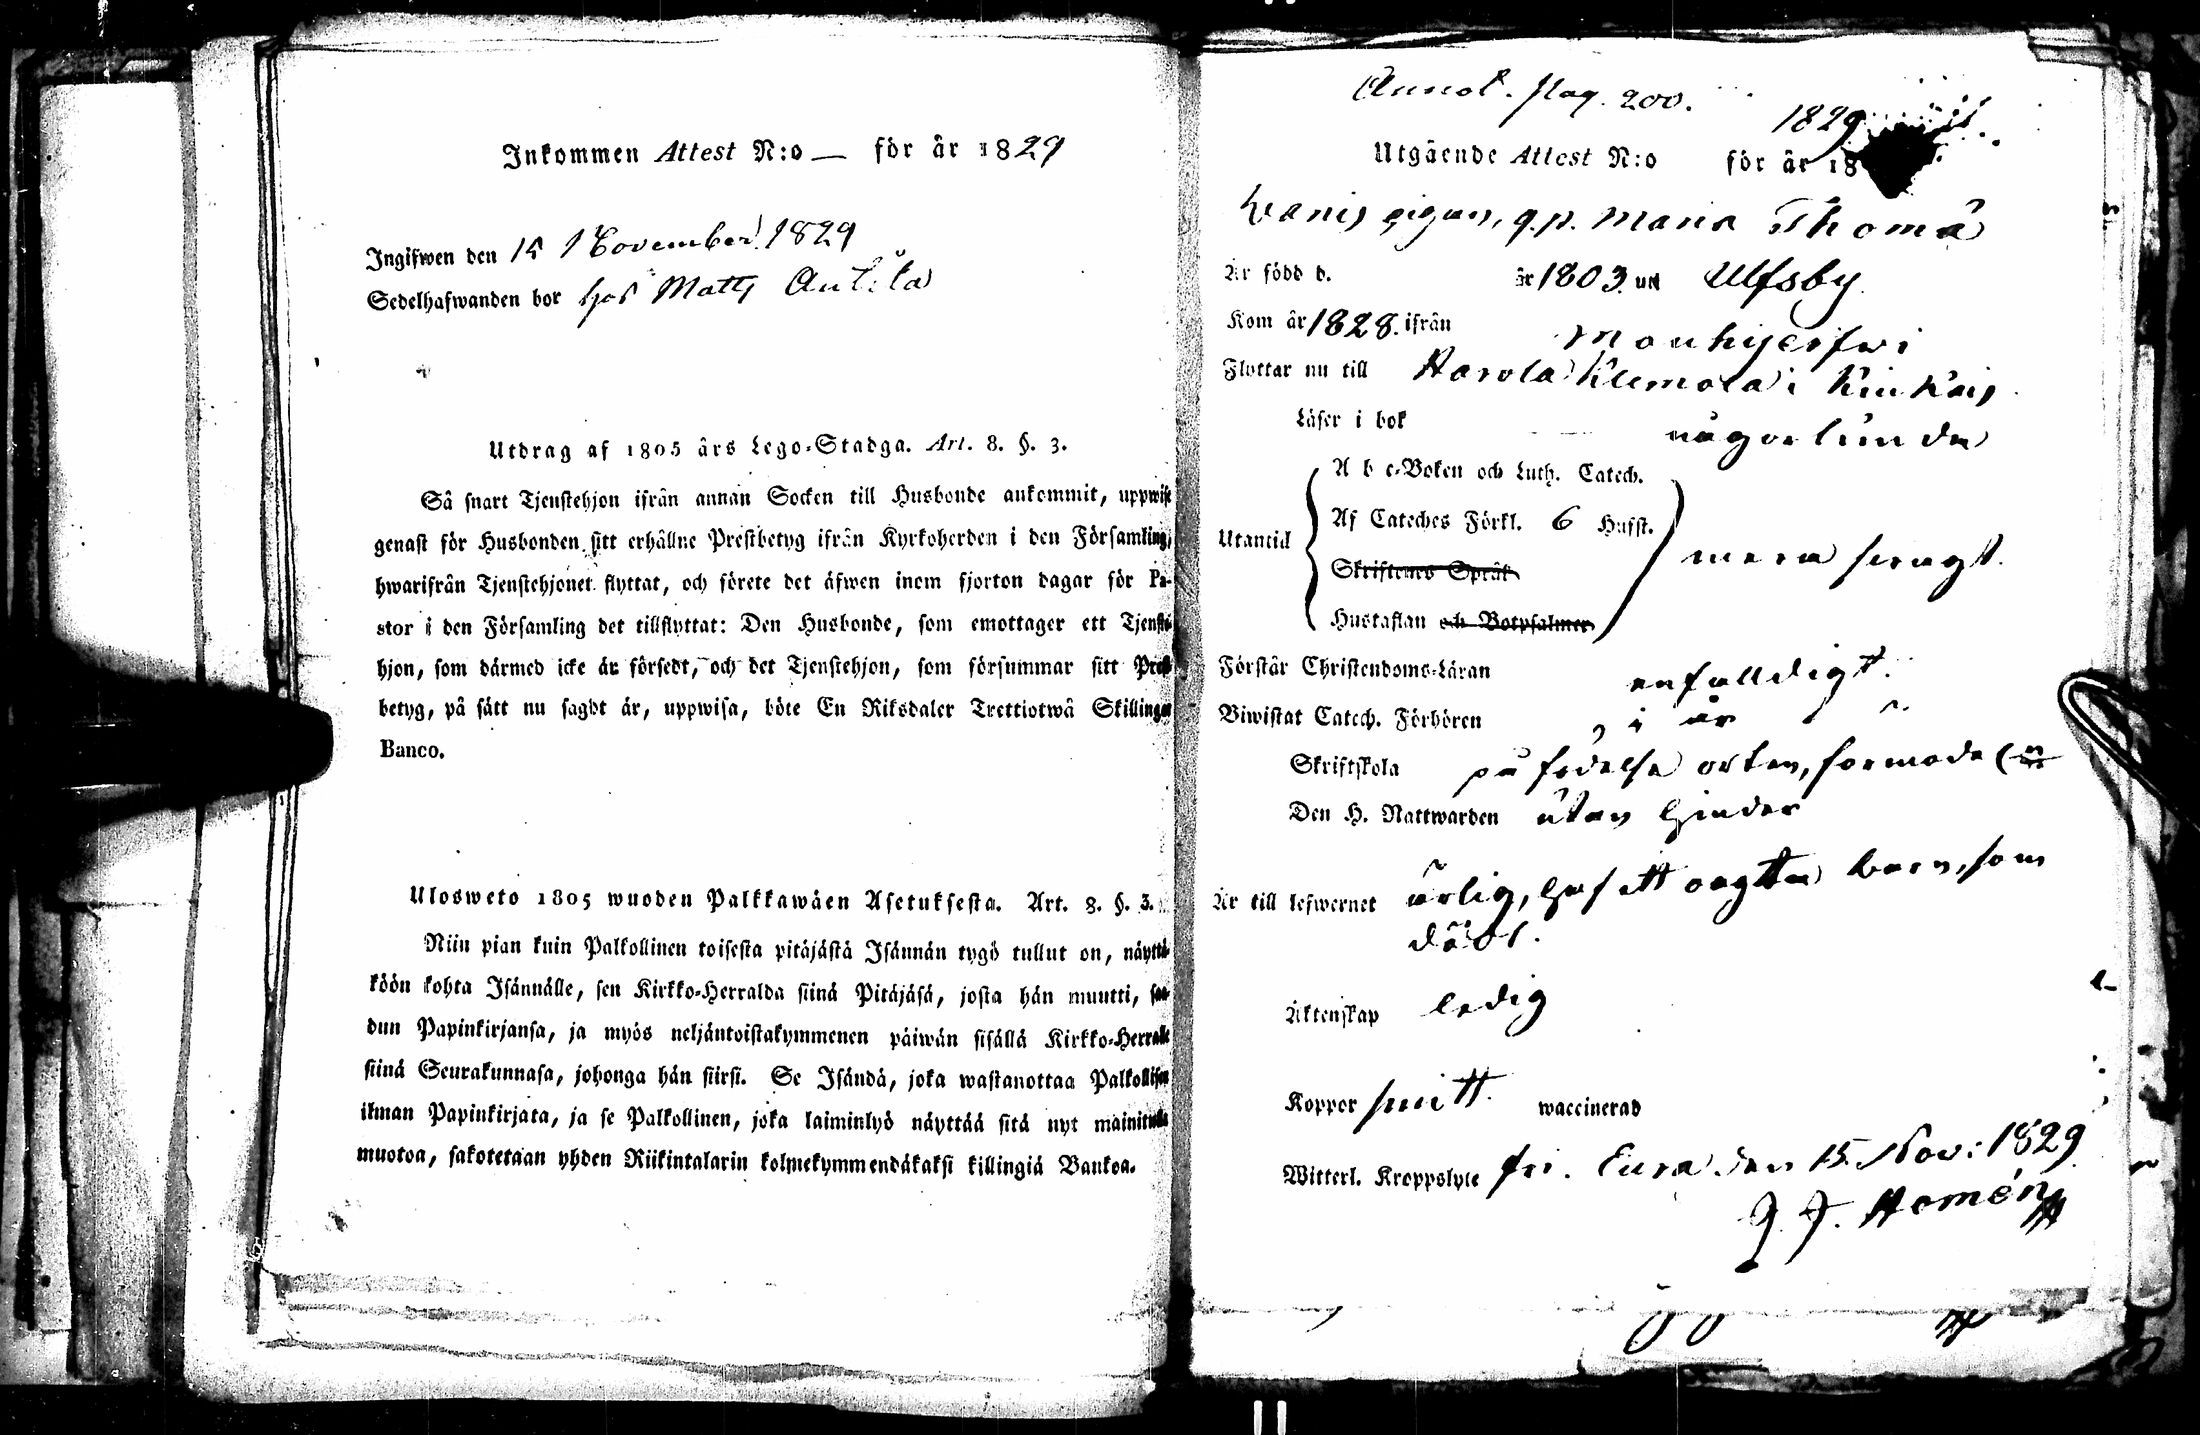 Inkommen Attest N:o — för år 1829
Ingifwen den 15 November 1829
Sedelhafwanden bor hos Matts Antila
Utdrag af 1805 års Lego-Stadga. Art. 8. §. 3.
Så snart Tjenstehjon ifrån annan Socken till Husbonde ankommit, uppwise
genast för Husbonden sitt erhållne Prestbetyg ifrån Kyrkoherden i den Församling,
hwarifrån Tjenstehjonet flyttat, och förete det äfwen inom fjorton dagar för Pa-
stor i den Församling det tillflyttat: Den Husbonde, som emottager ett Tjenste-
hjon, som därmed icke är försedt, och det Tjenstehjon, som försummar sitt Prest-
betyg, på sätt nu sagdt är, uppwisa, böte En Riksdaler Trettiotwå Skillingar
Banco.
Ulosweto 1805 wuoden Palkkawäen Asetuksesta. Art. 8. §. 3.
Niin pian kuin Palkollinen toisesta pitäjästä Isännän tygö tullut on, näyttä-
köön kohta Isännälle, sen Kirkko-Herralda siinä Pitäjäsä, josta hän muutti, saa-
dun Papinkirjansa, ja myös neljäntoistakymmenen päiwän sisällä Kirkko-Herralle
siinä Seurakunnasa, johonga hän siirsi. Se Isändä, joka wastanottaa Palkollisen
ilman Papinkirjata, ja se Palkollinen, joka laiminlyö näyttää sitä nyt mainitulla
muotoa, sakotetaan yhden Riikintalarin kolmekymmendäkaksi killingiä Bankoa.
Annot. pag. 200.
1829
Utgående Attest N:o för år 18
pigan, q.p. Maria Thomä
Är född d. år 1803. uti Ulfsby
Kom år 1828. ifrån Mouhijerfwi
Flyttar nu till Harola Klemola i Kiukais
Läser i bok någorlunda
A b c-Boken och Luth. Catech.
Utantid Af Cateches Förkl. 6 Hufst. mera swagt.
Skriftenes Språk
Hustaflan och Botpsalmer
Förstår Christendoms-Läran enfalldigt.
Biwistat Catech. Förhören i år
Skriftskola på födelse orten, förmode
Den H. Nattwarden utan hinder
Är till lefwernet ärlig, haf ett oägta barn, som
dödt.
Äktenskap ledig
Koppor smitt. waccinerad
Witterl. Kroppslyte fri. Eura den 15. Nov: 1829
J. F. Homén